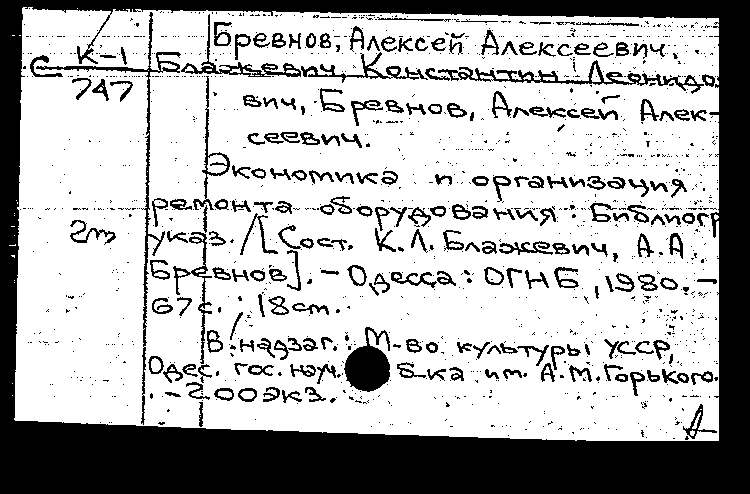 Бревнов, Алексей Алексеевич.
С К-1 Блажевич, Константин Леонидо-
747 вич, Бревнов, Алексей Алек-
сеевич.
Экономика и организация
ремонта оборудования : Библиогр
2т указ. / [Сост. К.Л. Блажевич, А.А.
Бревнов]. - Одесса : ОГНБ, 1980. -
67 с. ; 18 см.
В надзаг. : М-во культуры УССР,
Одес. гос. науч. б-ка им. А.М. Горького.
. - 200 экз.